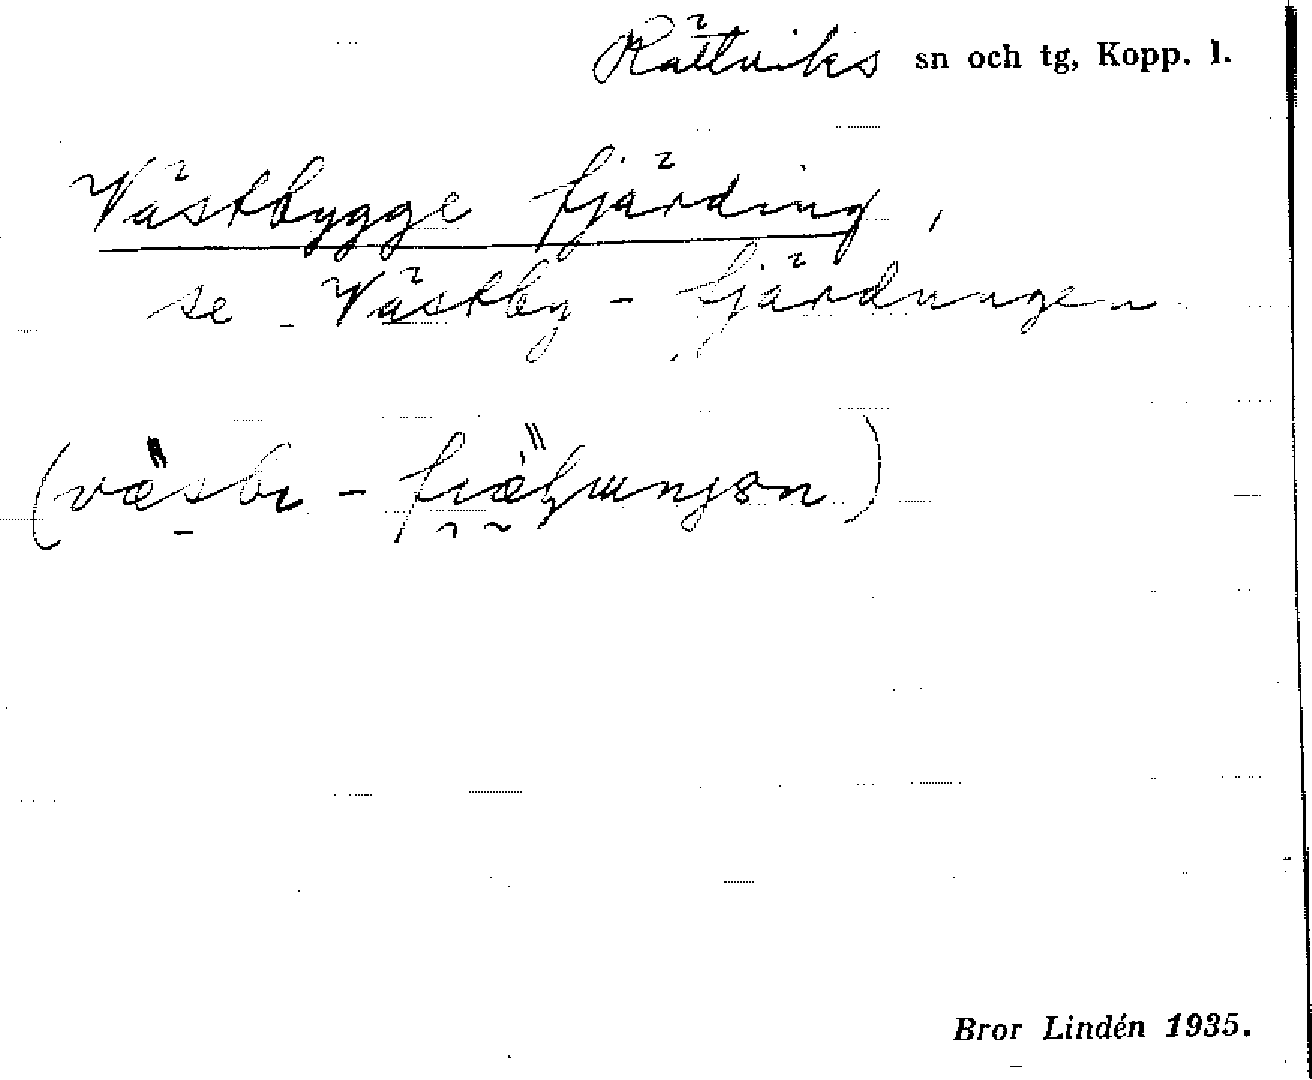 Rättviks sn och tg, Kopp. l.
Västbygge fjärding,
se Västby-fjärdungen
Bror Lindén 1935.